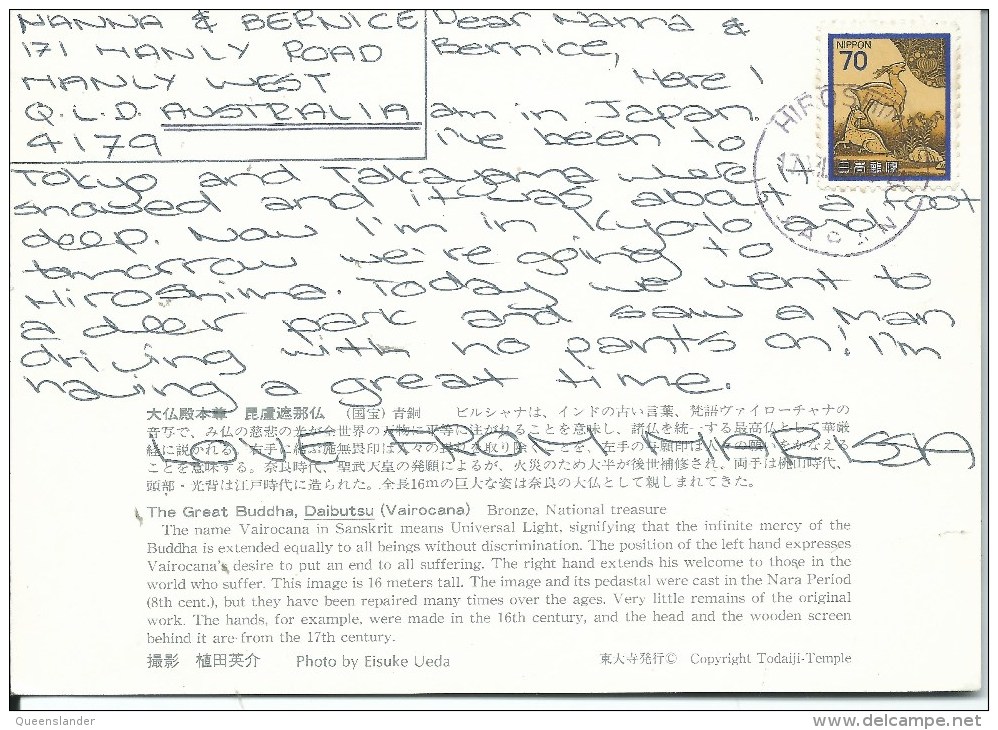 NANNA & BERNICE
171 MANLY ROAD
MANLY WEST
Q.L.D. AUSTRALIA
4179
Dear Nanna &
Bernice,
Here I
am in Japan.
I've been to
Tokyo and Takayama were
snowed and it was about a foot
deep. Now I'm in Kyoto and
tomorrow we're going to
Hiroshima. Today we want to
a deer park and saw a man
driving with no pants on! I'm
having a great time.
LOVE FROM MARISSA
NIPPON
70
日本郵便
HIROSHIMA
JAPAN
大仏殿本尊 毘盧遮那仏 (国宝) 青銅 ビルシャナは、インドの古い言葉、梵語ヴァイローチャナの
音写で、み仏の慈悲の光が全世界の万物に平等に注がれることを意味し、諸仏を統一する最高仏として華厳
経に説かれる。右手に結ぶ施無畏印は人々の を取り除くことを、左手の与願印は人々の願いをかなえる
ことを意味する。奈良時代、聖武天皇の発願によるが、火災のため大半が後世補修され、両手は桃山時代、
頭部・光背は江戸時代に造られた。全長16mの巨大な姿は奈良の大仏として親しまれてきた。
The Great Buddha, Daibutsu (Vairocana) Bronze, National treasure
The name Vairocana in Sanskrit means Universal Light, signifying that the infinite mercy of the
Buddha is extended equally to all beings without discrimination. The position of the left hand expresses
Vairocana's desire to put an end to all suffering. The right hand extends his welcome to those in the
world who suffer. This image is 16 meters tall. The image and its pedastal were cast in the Nara Period
(8th cent.), but they have been repaired many times over the ages. Very little remains of the original
work. The hands, for example, were made in the 16th century, and the head and the wooden screen
behind it are from the 17th century.
撮影 植田英介 Photo by Eisuke Ueda 東大寺発行© Copyright Todaiji-Temple
Queenslander
delcampe.net